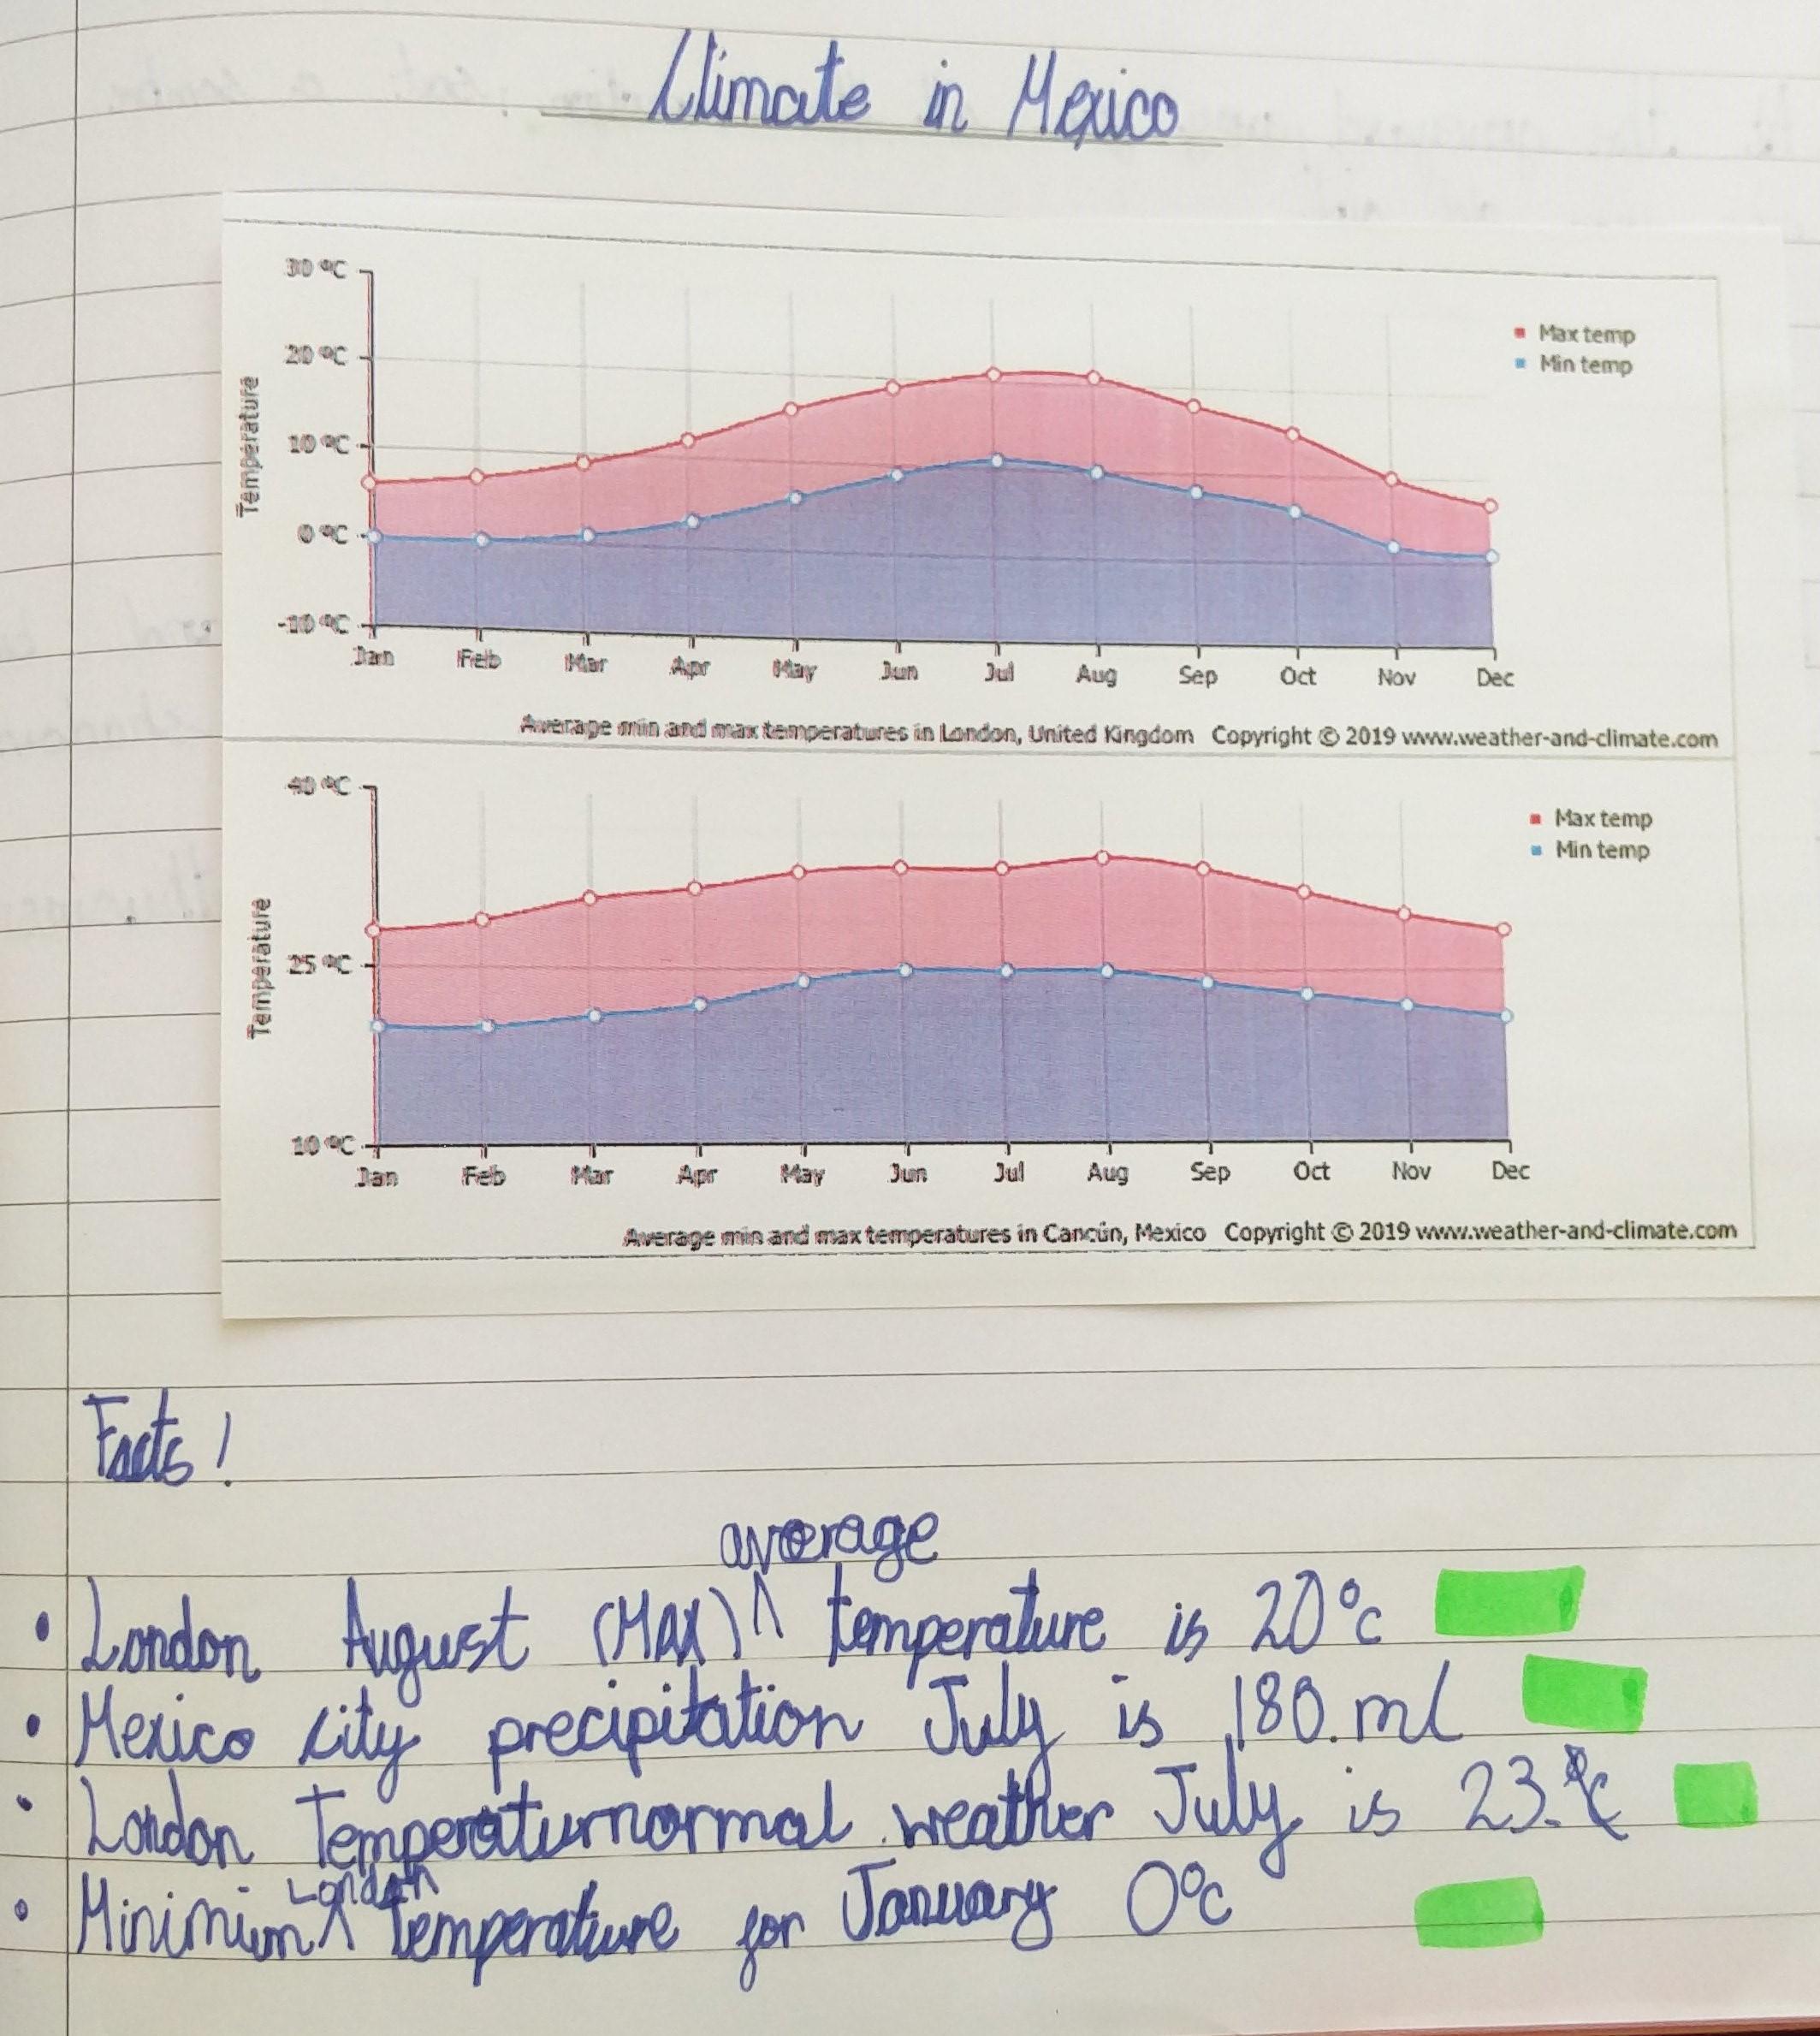 Climate in Mexico
30 °C
20 °C
10 °C
0 °C
-10 °C
Temperature
Max temp
Min temp
Jan Feb Mar Apr May Jun Jul Aug Sep Oct Nov Dec
Average min and max temperatures in London, United Kingdom Copyright © 2019 www.weather-and-climate.com
40 °C
25 °C
10 °C
Temperature
Max temp
Min temp
Jan Feb Mar Apr May Jun Jul Aug Sep Oct Nov Dec
Average min and max temperatures in Cancún, Mexico Copyright © 2019 www.weather-and-climate.com
Facts!
average
• London August (MAX) ^ temperature is 20°c
• Mexico city precipitation July is 180.ml
• London Temperaturnormal weather July is 23.°c
London
• Minimium ^ temperature for January 0°c